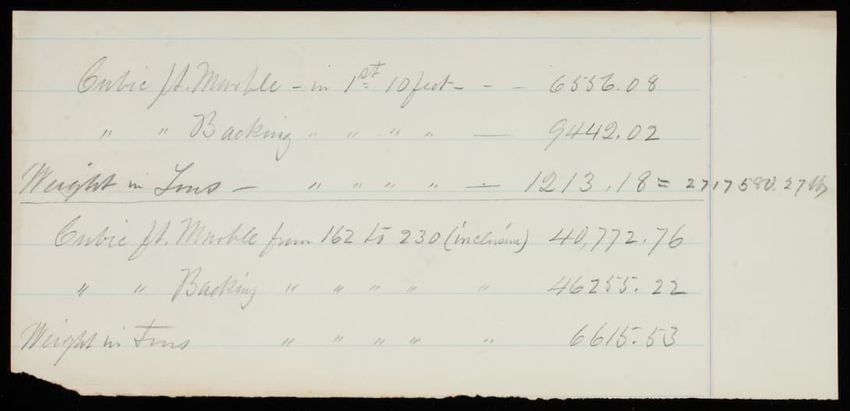 Cubic ft. Marble - in 1st 10 feet - - - 6556.08
" " Backing " " " " — 9442.02
Weight in Tons - " " " " — 1213.18 = 2717580.27 lb
Cubic ft. Marble from 162 to 230 (inclusive) 40,772.76
" " Backing " " " " " 46255.22
Weight in Tons " " " " " 6615.53